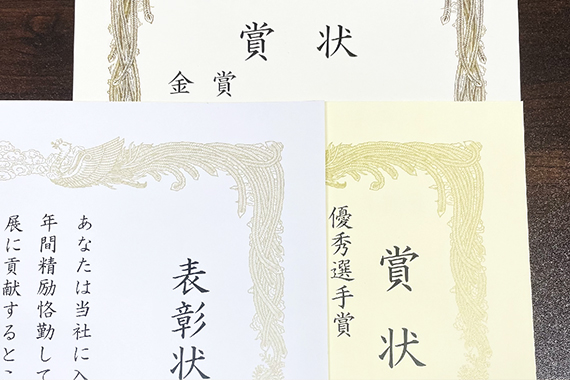 賞状
金賞
賞状
優秀選手賞
表彰状
あなたは当社に入
年間精励恪勤して
展に貢献すると